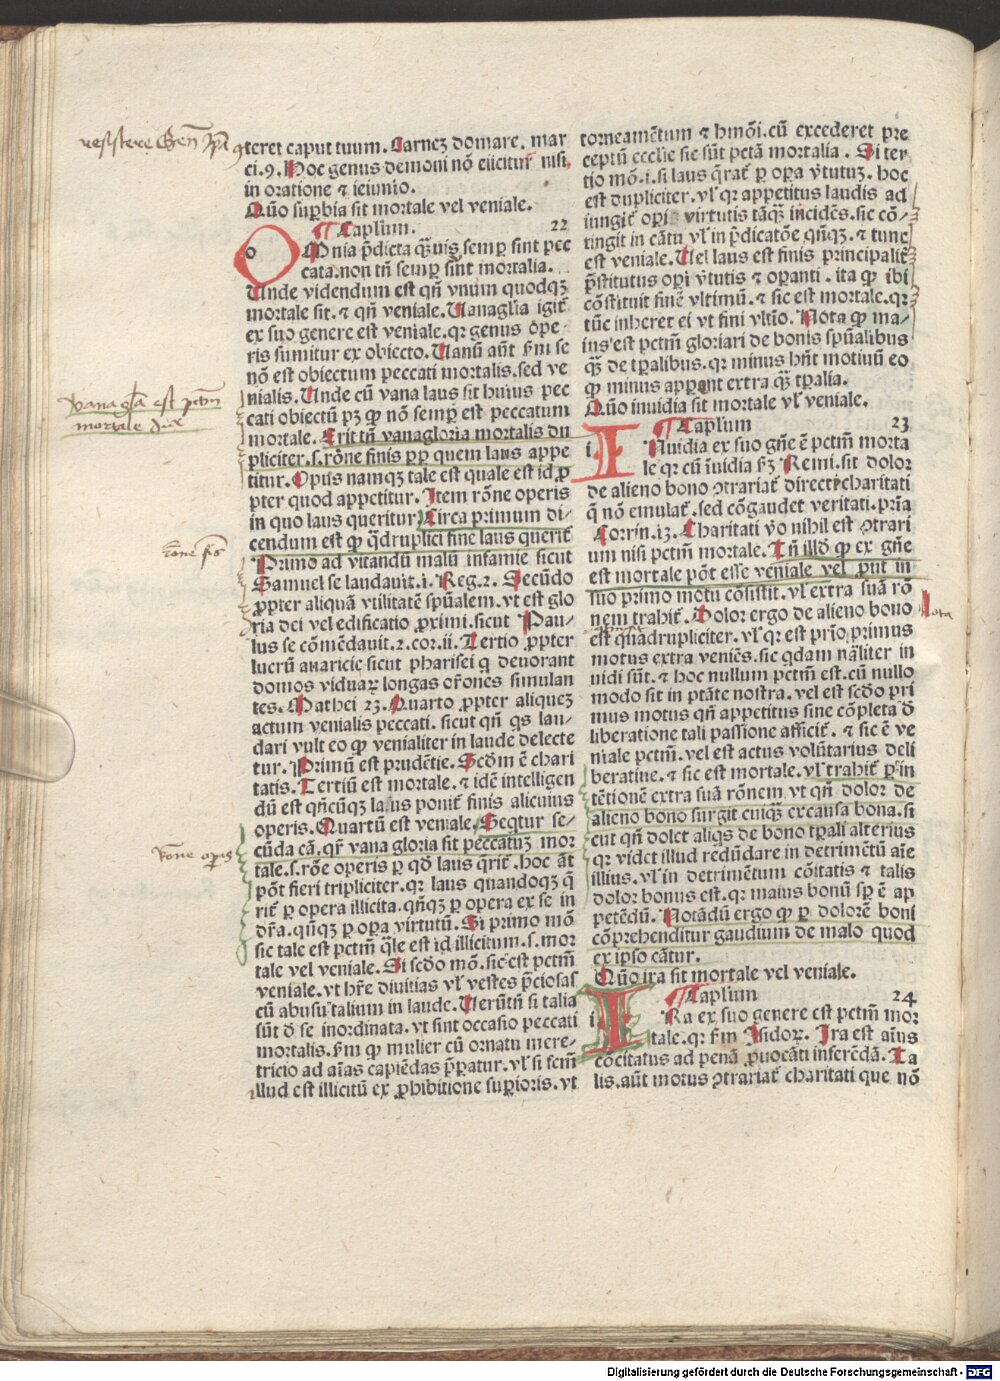 ꝯteret caput tuum. Carneꝫ domare. mar
ci.9. Hoc genus demonī nō eiicitur nisi
in oratione ⁊ ieiunio.
Quō suꝑbia sit mortale vel veniale.
¶ Caplum. 22
OMnia p̄dicta q̄uis semꝑ sint pec
cata.non tn̄ semꝑ sint mortalia.
Unde videndum est qn̄ vnum quodqꝫ
mortale sit. ⁊ qn̄ veniale. Uanaglīa igit̄
ex suo genere est veniale. qꝛ genus ope
ris sumitur ex obiecto. Uanū aūt ẜm se
nō est obiectum peccati mortalis. sed ve
nialis. Unde cū vana laus sit huius pec
cati obiectū pꝫ ꝙ nō semꝑ est peccatum
mortale. Erit tn̄ vanagloria mortalis du
pliciter.s.rōne finis ꝓp quem laus appe
titur. Opus namqꝫ tale est quale est id ꝓ
pter quod appetitur. Item rōne operis
in quo laus queritur. Circa primum di-
cendum est ꝙ q̄druplici fine laus querit̄
Primo ad vitandū malū infamie sicut
Samuel se laudauit.i. Reg.2. Secūdo
ꝓpter aliquā vtilitatē spūalem. vt est glo
ria dei vel edificatio ꝓximi. sicut Pau-
lus se cōmēdauit.2.cor.ii. Tertio ꝓpter
lucrū auaricie sicut pharisei q̄ deuorant
domos viduaꝝ longas or̄ones simulan
tes. Mathei 23. Quarto ꝓpter aliqueꝫ
actum venialis peccati. sicut qn̄ qs lau-
dari vult eo ꝙ venialiter in laude delecte
tur. Primū est prudētie. Scd̄m ē chari
tatis. Tertiū est mortale. ⁊ idē intelligen
dū est qn̄cūqꝫ laus ponit̄ finis alicuius
operis. Quartū est veniale. Seqtur se-
cūda cā.qr̄ vana gloria sit peccatuꝫ mor
tale.s.rōe operis ꝑ qd̄ laus q̄rit̄. hoc āt
pōt fieri tripliciter. qꝛ laus quandoqꝫ q̄
rit̄ ꝑ opera illicita. qn̄qꝫ ꝑ opera ex se in
dr̄a. qn̄qꝫ ꝑ oꝑa virtutū. Si primo mō
sic tale est pctm̄ q̄le est id illicitum.s.mor
tale vel veniale. Si scd̄o mō. sic est pctm̄
veniale. vt hr̄e diuitias vl̄ vestes p̄ciosas
cū abusu talium in laude. Uerūtn̄ si talia
sūt d̄ se inordinata. vt sint occasio peccati
mortalis. ẜm ꝙ mulier cū ornatu mere-
tricio ad aīas capiēdas p̄patur. vl̄ si sem̄
illud est illicitū ex ꝓhibitione suꝑioris. vt
torneamētum ⁊ hmōi.cū excederet pre
ceptū ecclīe sic sūt pctā mortalia. Si ter
tio mō.i.si laus q̄rat̄ ꝑ oꝑa v̄tutuꝫ. hoc
est dupliciter. vl̄ qꝛ appetitus laudis ad
iungit̄ oꝑi virtutis tāqꝫ incidēs. sic cō-
tingit in cātu vl̄ in p̄dicatōe qn̄qꝫ. ⁊ tunc
est veniale. Uel laus est finis principalit̄
p̄stitutus oꝑi v̄tutis ⁊ oꝑanti. ita ꝙ ibi
cōstituit finē vltimū. ⁊ sic est mortale. qꝛ
tūc inheret ei vt fini vltīo. Nota ꝙ ma-
ius est pctm̄ gloriari de bonis spūalibus
q̄ꝫ de tꝑalibus. qꝛ minus hn̄t motiuū eo
ꝙ minus apparent extra q̄ꝫ tꝑalia.
Quō inuidia sit mortale vl̄ veniale.
¶ Caplum 23
INuidia ex suo gn̄e ē pctm̄ morta
le qꝛ cū īuidia ẜꝫ Remi.sit dolor
de alieno bono ꝯtrariat̄ directe charitati
q̄ nō emulat̄. sed cōgaudet veritati.prīa
Corrin.i3. Charitati v̄o nihil est ꝯtrari
um nisi pctm̄ mortale. Tn̄ illd̄ ꝙ ex gn̄e
est mortale pōt esse veniale vel ꝓut in
suo primo motu cōsistit. vl̄ extra suā rō
nem trahit̄. Dolor ergo de alieno bono
est quadrupliciter. vl̄ qꝛ est prīo primus
motus extra veniēs. sic qdam nāliter in
uidi sūt. ⁊ hoc nullum pctm̄ est. cū nullo
modo sit in ptāte nostra. vel est scd̄o pri
mus motus qn̄ appetitus sine cōpleta d̄
liberatione tali passione afficit̄. ⁊ sic ē ve
niale pctm̄. vel est actus volūtarius deli
beratine. ⁊ sic est mortale. vl̄ trahit̄ ꝑ in
tētionē extra suā rōnem vt qn̄ dolor de
alieno bono surgit cuiqꝫ ex causa bona. si
cut qn̄ dolet aliqs de bono tꝑali alterius
qꝛ videt illud redūdare in detrimētū aīe
illius. vl̄ in detrimētum cōitatis ⁊ talis
dolor bonus est. qꝛ maius bonū sꝑ ē ap
petēdū. Notādū ergo ꝙ ꝑ dolorē boni
cōprehenditur gaudium de malo quod
ex ipso cātur.
Quō ira sit mortale vel veniale.
¶ Caplum 24
IRa ex suo genere est pctm̄ mor
tale. qꝛ ẜm Isidoꝝ. Ira est aīus
cōcitatus ad penā ꝓuocāti inferēdā. Ta
lis.aūt motus ꝯtrariat̄ charitati que nō
resistere
vana gla est pctm
mortale
rōne fīs
rōne operis
Nota
Digitalisierung gefördert durch die Deutsche Forschungsgemeinschaft - DFG